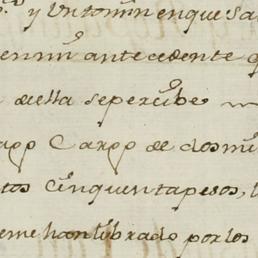 y Un tomin en que sa
antecedente q
della se percibe
Cargo de dos mil
tos cinquenta pesos, l
eme han librado por los